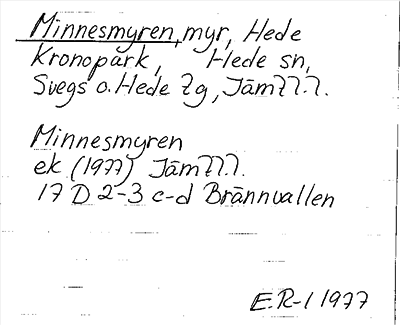 Minnesmyren, myr, Hede
Kronopark, Hede sn,
Svegs o. Hede tg, Jämtl l.
Minnesmyren
ek (1977) Jämtl l.
17 D 2-3 c-d Brännvallen
E.R-l 1977